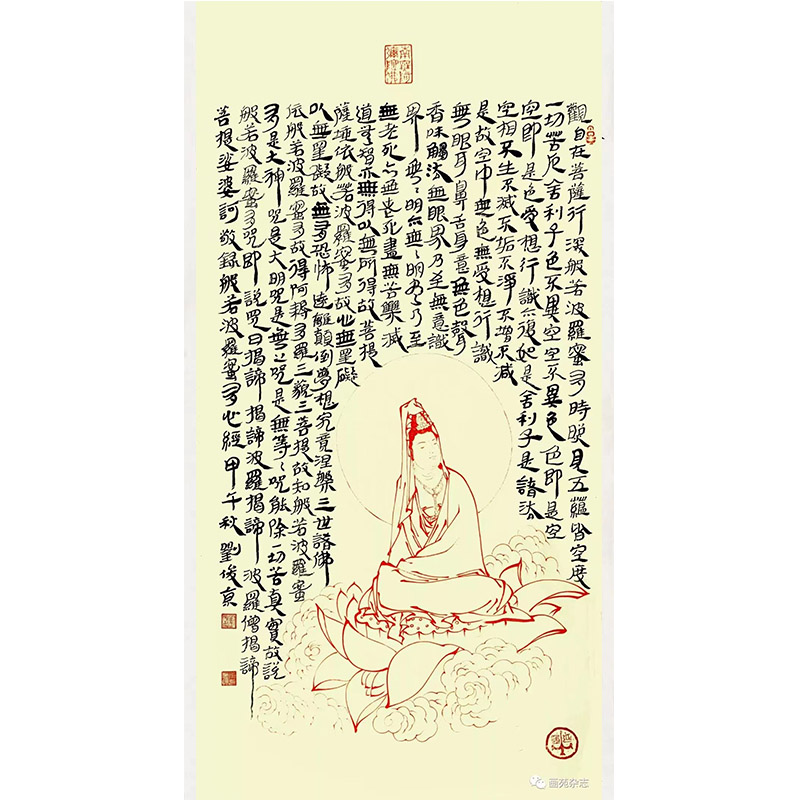 南無阿彌陀佛
觀自在菩薩行深般若波羅蜜多時照見五蘊皆空度
一切苦厄舍利子色不異空空不異色色即是空
空即是色受想行識亦復如是舍利子是諸法
空相不生不滅不垢不淨不增不減
是故空中無色無受想行識
無眼耳鼻舌身意無色聲
香味觸法無眼界乃至無意識
界無〻明亦無〻明盡乃至
無老死亦無老死盡無苦集滅
道無智亦無得以無所得故菩提
薩埵依般若波羅蜜多故心無罣礙
以無罣礙故無有恐怖遠離顛倒夢想究竟涅槃三世諸佛
依般若波羅蜜多故得阿耨多羅三藐三菩提故知般若波羅蜜
多是大神咒是大明咒是無上咒是無等〻咒能除一切苦真實故說
般若波羅蜜多咒即說咒曰揭諦揭諦波羅揭諦波羅僧揭諦
菩提娑婆訶敬錄般若波羅蜜多心經甲午秋劉俊京
画苑杂志